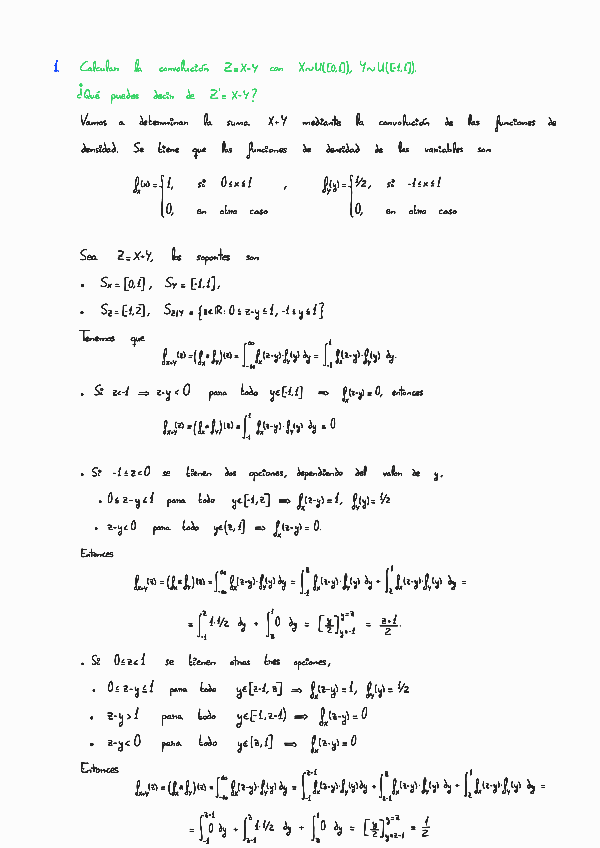 1. Calcular la convolución Z=X+Y con X~U([0,1]), Y~U([-1,1]).
¿Qué puedes decir de Z'=X-Y?
Vamos a determinar la suma X+Y mediante la convolución de las funciones de
densidad. Se tiene que las funciones de densidad de las variables son
f_X(x)={1, si 0≤x≤1 , f_Y(y)={1/2, si -1≤x≤1
0, en otro caso 0, en otro caso
Sea Z=X+Y, los soportes son
• S_X=[0,1], S_Y=[-1,1],
• S_Z=[-1,2], S_Z|Y={z∈ℝ: 0≤z-y≤1, -1≤y≤1}
Tenemos que
f_X+Y(z)=(f_X*f_Y)(z)=∫_{-∞}^{∞} f_X(z-y)·f_Y(y) dy = ∫_{-1}^{1} f_X(z-y)·f_Y(y) dy.
• Si z<-1 ⇒ z-y<0 para todo y∈[-1,1] ⇒ f_X(z-y)=0, entonces
f_X+Y(z)=(f_X*f_Y)(z)=∫_{-1}^{1} f_X(z-y)·f_Y(y) dy = 0
• Si -1≤z<0 se tienen dos opciones, dependiendo del valor de y,
• 0≤z-y≤1 para todo y∈[-1,z] ⇒ f_X(z-y)=1, f_Y(y)=1/2
• z-y<0 para todo y∈(z,1] ⇒ f_X(z-y)=0.
Entonces
f_X+Y(z)=(f_X*f_Y)(z)=∫_{-∞}^{∞} f_X(z-y)·f_Y(y) dy = ∫_{-1}^{z} f_X(z-y)·f_Y(y) dy + ∫_{z}^{1} f_X(z-y)·f_Y(y) dy =
= ∫_{-1}^{z} 1·1/2 dy + ∫_{z}^{1} 0 dy = [y/2]_{y=-1}^{y=z} = (z+1)/2.
• Si 0≤z<1 se tienen otras tres opciones,
• 0≤z-y≤1 para todo y∈[z-1,z] ⇒ f_X(z-y)=1, f_Y(y)=1/2
• z-y>1 para todo y∈[-1,z-1) ⇒ f_X(z-y)=0
• z-y<0 para todo y∈[z,1] ⇒ f_X(z-y)=0
Entonces
f_X+Y(z)=(f_X*f_Y)(z)=∫_{-∞}^{∞} f_X(z-y)·f_Y(y) dy = ∫_{-1}^{z-1} f_X(z-y)·f_Y(y) dy + ∫_{z-1}^{z} f_X(z-y)·f_Y(y) dy + ∫_{z}^{1} f_X(z-y)·f_Y(y) dy =
= ∫_{-1}^{z-1} 0 dy + ∫_{z-1}^{z} 1·1/2 dy + ∫_{z}^{1} 0 dy = [y/2]_{y=z-1}^{y=z} = 1/2